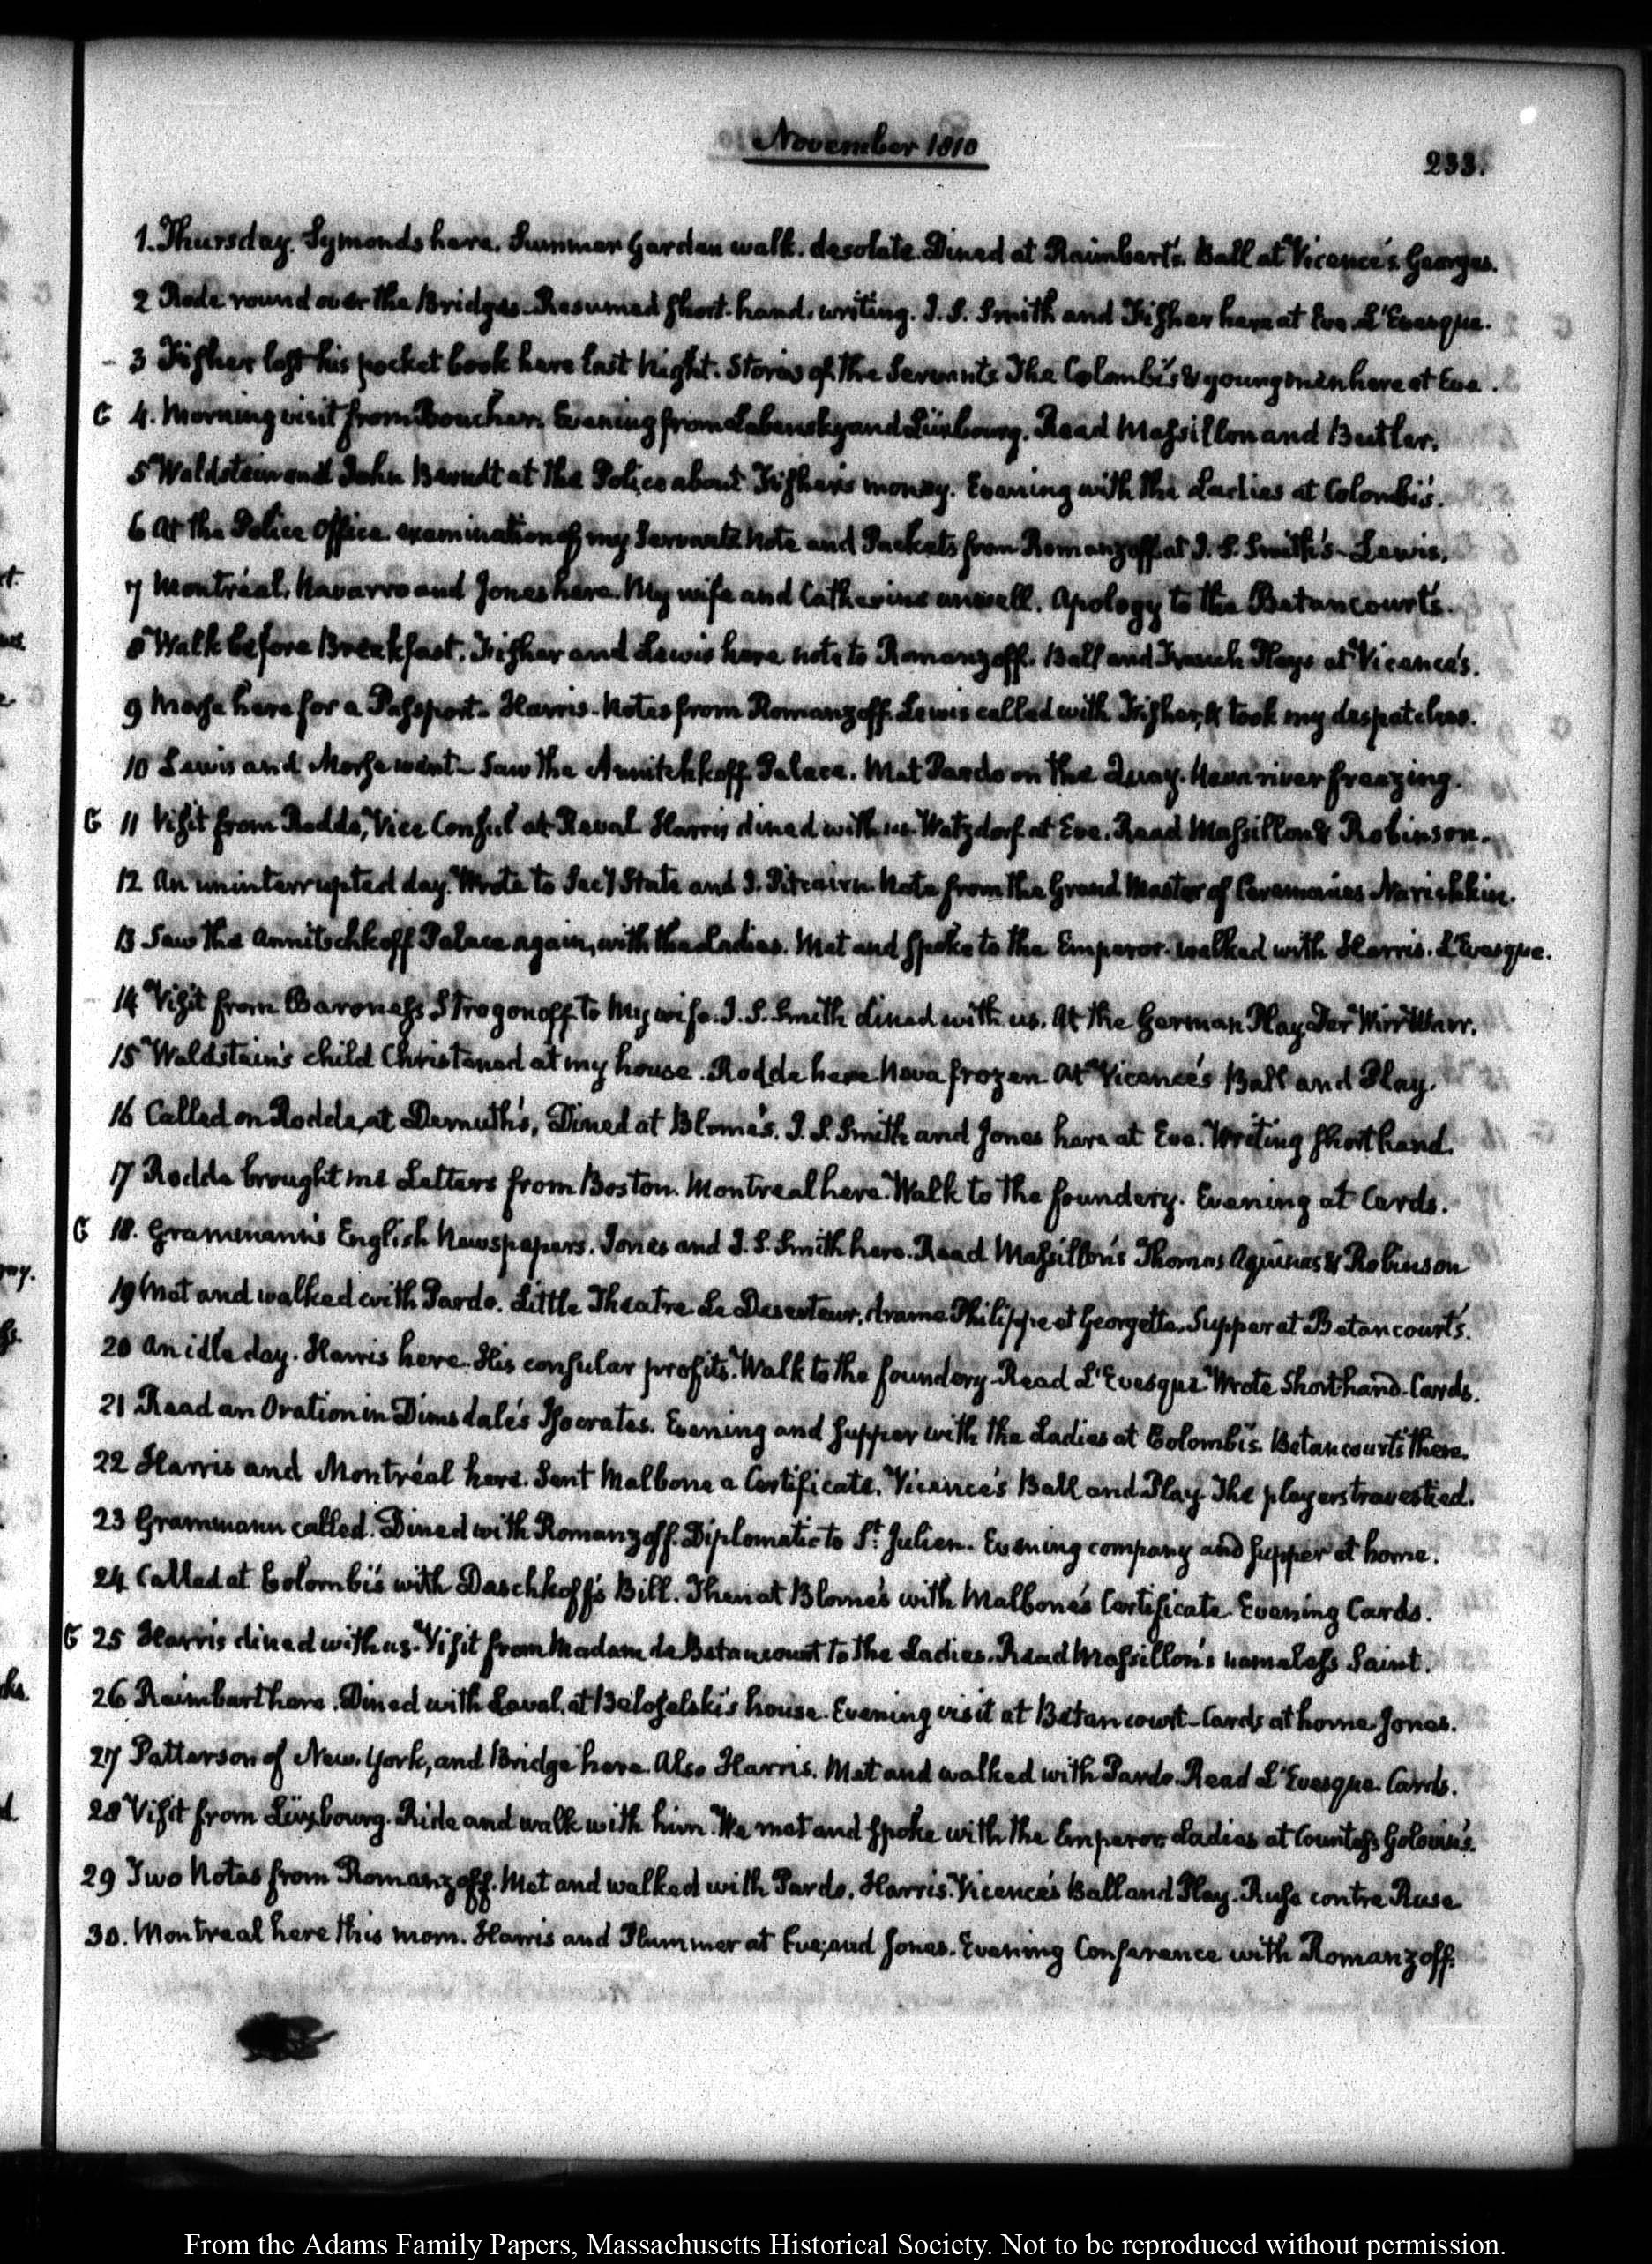 November 1810
233.
1. Thursday. Symonds here. Summer Garden walk. desolate. Dined at Raimbert's. Ball at Vicence's. Georges.
2 Rode round over the Bridges. Resumed short-hand writing. J. S. Smith and Fisher here at Eve. L'Evesque.
3 Fisher lost his pocket book here last Night. Stories of the Servants. The Colombi's & young men here at Eve.
G 4. Morning visit from Boucher. Evening from Labensky and Lüxbourg. Read Massillon and Butler.
5 Waldstein and John Berndt at the Police about Fisher's money. Evening with the Ladies at Colombi's.
6 At the Police Office. examination of my Servants. Note and Packets from Romanzoff. at J. S. Smith's—Lewis.
7 Montréal, Navarro and Jones here. My wife and Catherine unwell. Apology to the Betancourt's.
8 Walk before Breakfast. Fisher and Lewis here. note to Romanzoff. Ball and French Plays at Vicence's.
9 Morse here for a Passport. Harris. Notes from Romanzoff. Lewis called with Fisher, & took my despatches.
10 Lewis and Morse went—Saw the Annitchkoff Palace. Met Pardo on the Quay. Neva river freezing.
G 11 Visit from Rodde, Vice Consul at Reval. Harris dined with us. Watzdorf at Eve. Read Massillon & Robinson.
12 An uninterrupted day. Wrote to Secy State and J. Pitcairn. Note from the Grand Master of Ceremonies Narishkin.
13 Saw the Annitschkoff Palace again, with the Ladies. Met and spoke to the Emperor. walked with Harris. L'Evesque.
14 Visit from Baroness Strogonoff to My wife. J. S. Smith dined with us. At the German Play Der Wirr Warr.
15 Waldstein's child Christened at my house. Rodde here. Neva frozen. At Vicence's Ball and Play.
16 Called on Rodde, at Demuth's, Dined at Blome's. J. S. Smith and Jones here at Eve. Writing short hand.
17 Rodde brought me Letters from Boston. Montreal here. Walk to the foundery. Evening at Cards.
G 18. Grammann's English Newspapers. Jones and J. S. Smith here. Read Massillon's Thomas Aquinas & Robinson
19 Met and walked with Pardo. Little Theatre. Le Deserteur, drame. Philippe et Georgette. Supper at Betancourt's.
20 An idle day. Harris here. His consular profits. Walk to the foundery. Read L'Evesque. Wrote Shorthand. Cards.
21 Read an Oration in Dimsdale's Isocrates. Evening and supper with the Ladies at Colombi's. Betancourts there.
22 Harris and Montréal here. Sent Malbone a Certificate. Vicence's Ball and Play. The players travestied.
23 Grammann called. Dined with Romanzoff. Diplomatic to St. Julien. Evening company and supper at home.
24 Called at Colombi's with Daschkoff's Bill. Then at Blome's with Malbone's Certificate. Evening Cards.
G 25 Harris dined with us. Visit from Madam de Betancourt to the Ladies. Read Massillon's nameless Saint.
26 Raimbert here. Dined with Laval, at Beloselski's house. Evening visit at Betancourt—Cards at home. Jones.
27 Patterson of New York, and Bridge here. Also Harris. Met and walked with Pardo. Read L'Evesque. Cards.
28 Visit from Lüxbourg. Ride and walk with him. We met and spoke with the Emperor. Ladies at Countess Golovin's.
29 Two Notes from Romanzoff. Met and walked with Pardo. Harris. Vicence's Ball and Play. Ruse contre Ruse
30. Montreal here this morn. Harris and Plummer at Eve, and Jones. Evening Conference with Romanzoff.
From the Adams Family Papers, Massachusetts Historical Society. Not to be reproduced without permission.